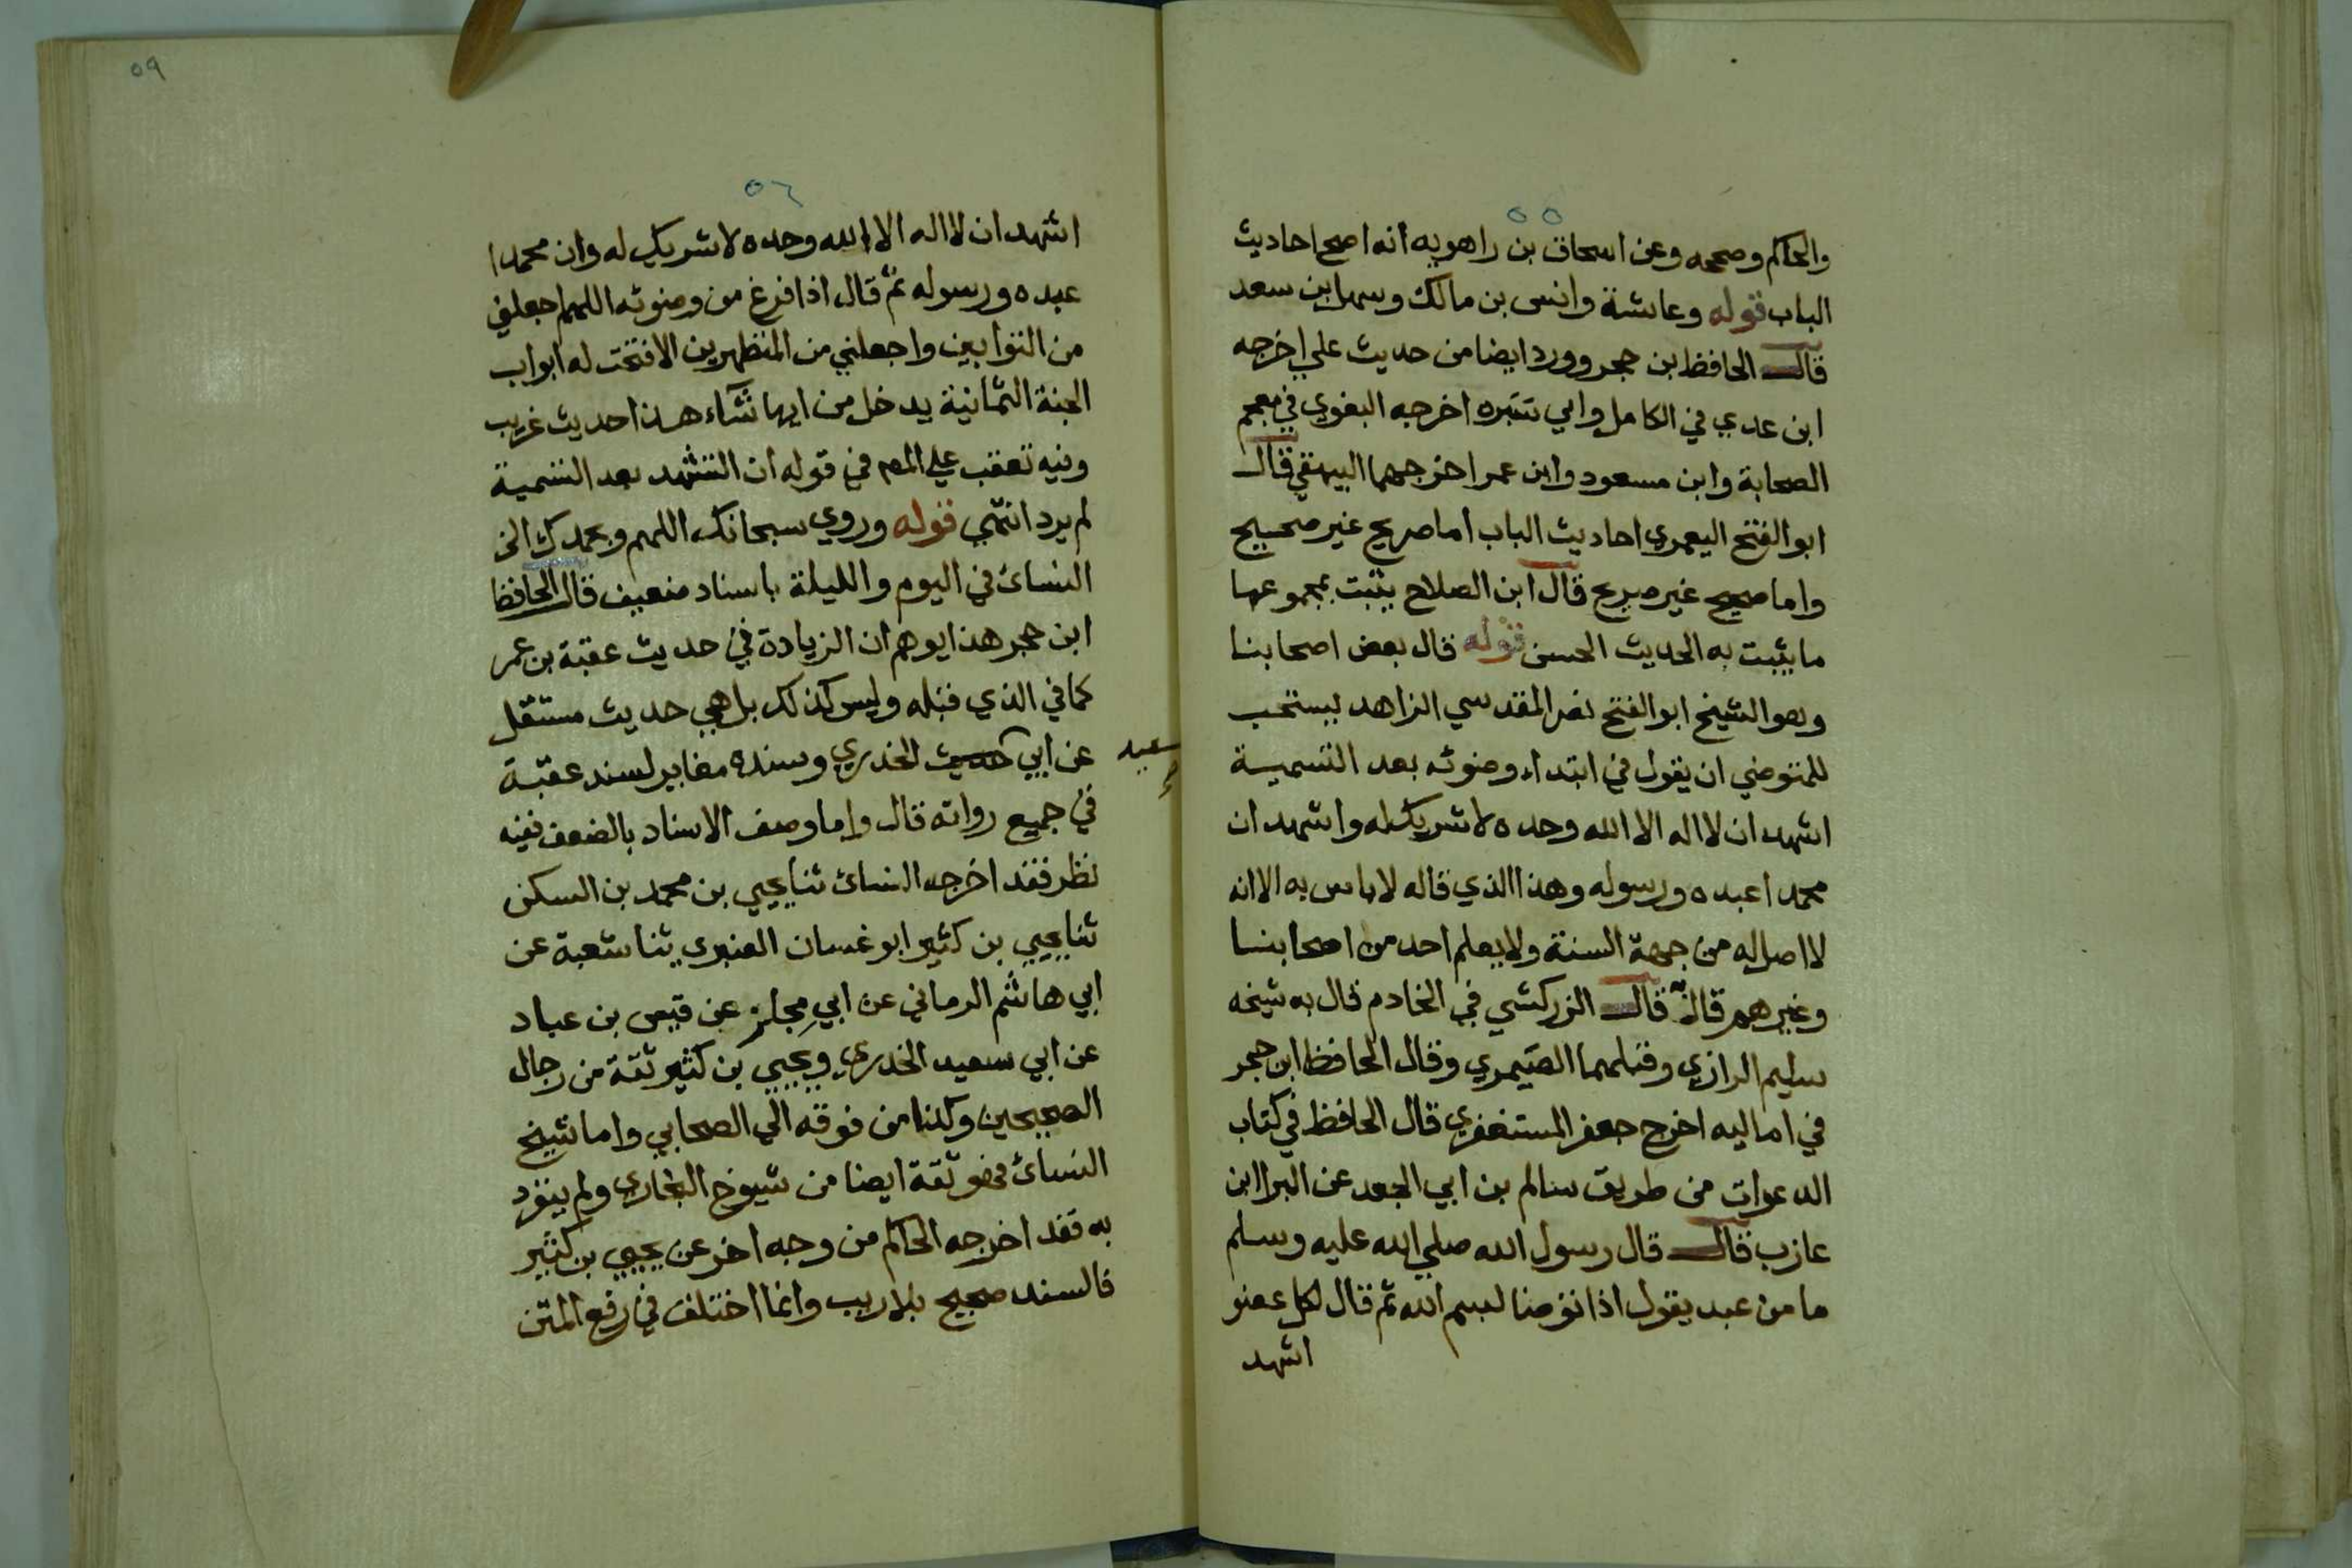 ٥٥
والحاكم وصححه وعن اسحاق بن راهويه انه اصح احاديث
الباب قوله وعائشة وانس بن مالك وسهل بن سعد
قال الحافظ بن حجر وورد ايضا من حديث علي اخرجه
ابن عدي في الكامل وابي سبره اخرجه البغوي في معجم
الصحابة وابن مسعود وابن عمر اخرجهما البيهقي قال
ابو الفتح اليعمري احاديث الباب اما صريح غير صحيح
واما صحيح غير صريح قال ابن الصلاح يثبت بمجموعها
ما يثبت به الحديث الحسن قوله قال بعض اصحابنا
وهو الشيخ ابو الفتح نصر المقدسي الزاهد يستحب
للمتوضي ان يقول في ابتداء وضوئه بعد التسمية
اشهد ان لا اله الا الله وحده لا شريك له واشهد ان
محمدا عبده ورسوله وهذا الذي قاله لا باس به الا انه
لا اصل له من جهة السنة ولا يعلم احد من اصحابنا
وغيرهم قال به قال الزركشي في الخادم قال به شيخه
سليم الرازي وقبلهما الصيمري وقال الحافظ ابن حجر
في اماليه اخرج جعفر المستغفري قال الحافظ في كتاب
الدعوات من طريق سالم بن ابي الجعد عن البرا ابن
عازب قال قال رسول الله صلي الله عليه وسلم
ما من عبد يقول اذا توضا بسم الله ثم قال لكل عضو
اشهد
٥٩
٥٦
اشهد ان لا اله الا الله وحده لا شريك له وان محمدا
عبده ورسوله ثم قال اذا فرغ من وضوئه اللهم اجعلني
من التوابين واجعلني من المتطهرين الا فتحت له ابواب
الجنة الثمانية يدخل من ايها شآء هذا حديث غريب
وفيه تعقب علي المص في قوله ان التشهد بعد التسمية
لم يرد انتهي قوله وروي سبحانك اللهم وبحمدك الخ
النسائ في اليوم والليلة باسناد ضعيف قال الحافظ
ابن حجر هذا يوهم ان الزيادة في حديث عقبة بن عمر
كما في الذي قبله وليس كذلك بل هي حديث مستقل
عن ابي حديث الخدري وسنده مغاير لسند عقبة
سعيد
في جميع رواته قال واما وصف الاسناد بالضعف ففيه
نظر فقد اخرجه النسائ ثنا يحيي بن محمد بن السكن
ثنا يحيي بن كثير ابو غسان العنبري ثنا شعبة عن
ابي هاشم الرماني عن ابي مجلز عن قيس بن عباد
عن ابي سعيد الخدري ويحيي بن كثير ثقة من رجال
الصحيحين وكذا من فوقه الي الصحابي واما شيخ
النسائ فهو ثقة ايضا من شيوخ البخاري ولم ينفرد
به فقد اخرجه الحاكم من وجه اخر عن يحيي بن كثير
فالسند صحيح بلا ريب وانما اختلف في رفع المتن